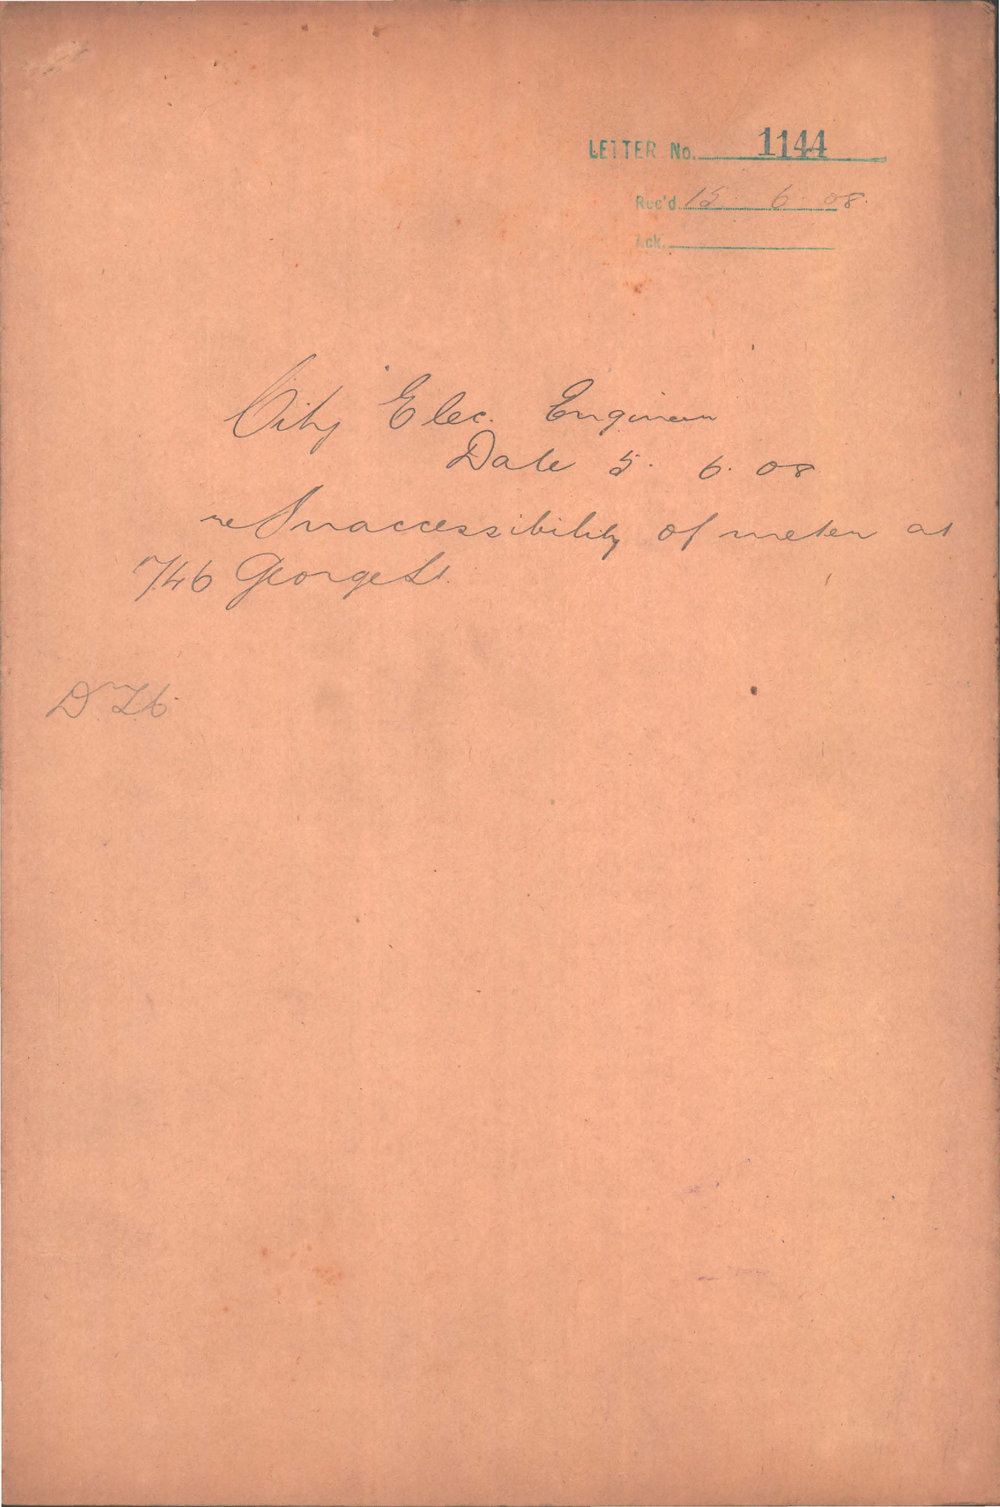 LETTER No. 1144
Rec'd. 15. 6. 08.
Ack.
City Elec. Engineer
Date 5. 6. 08
re Inaccessibility of meter at
746 George St.